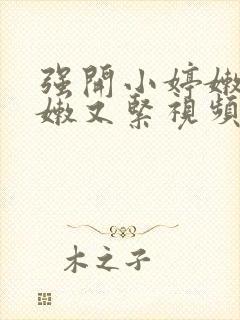 强開小婷嫩
嫩又緊視頻
木之子